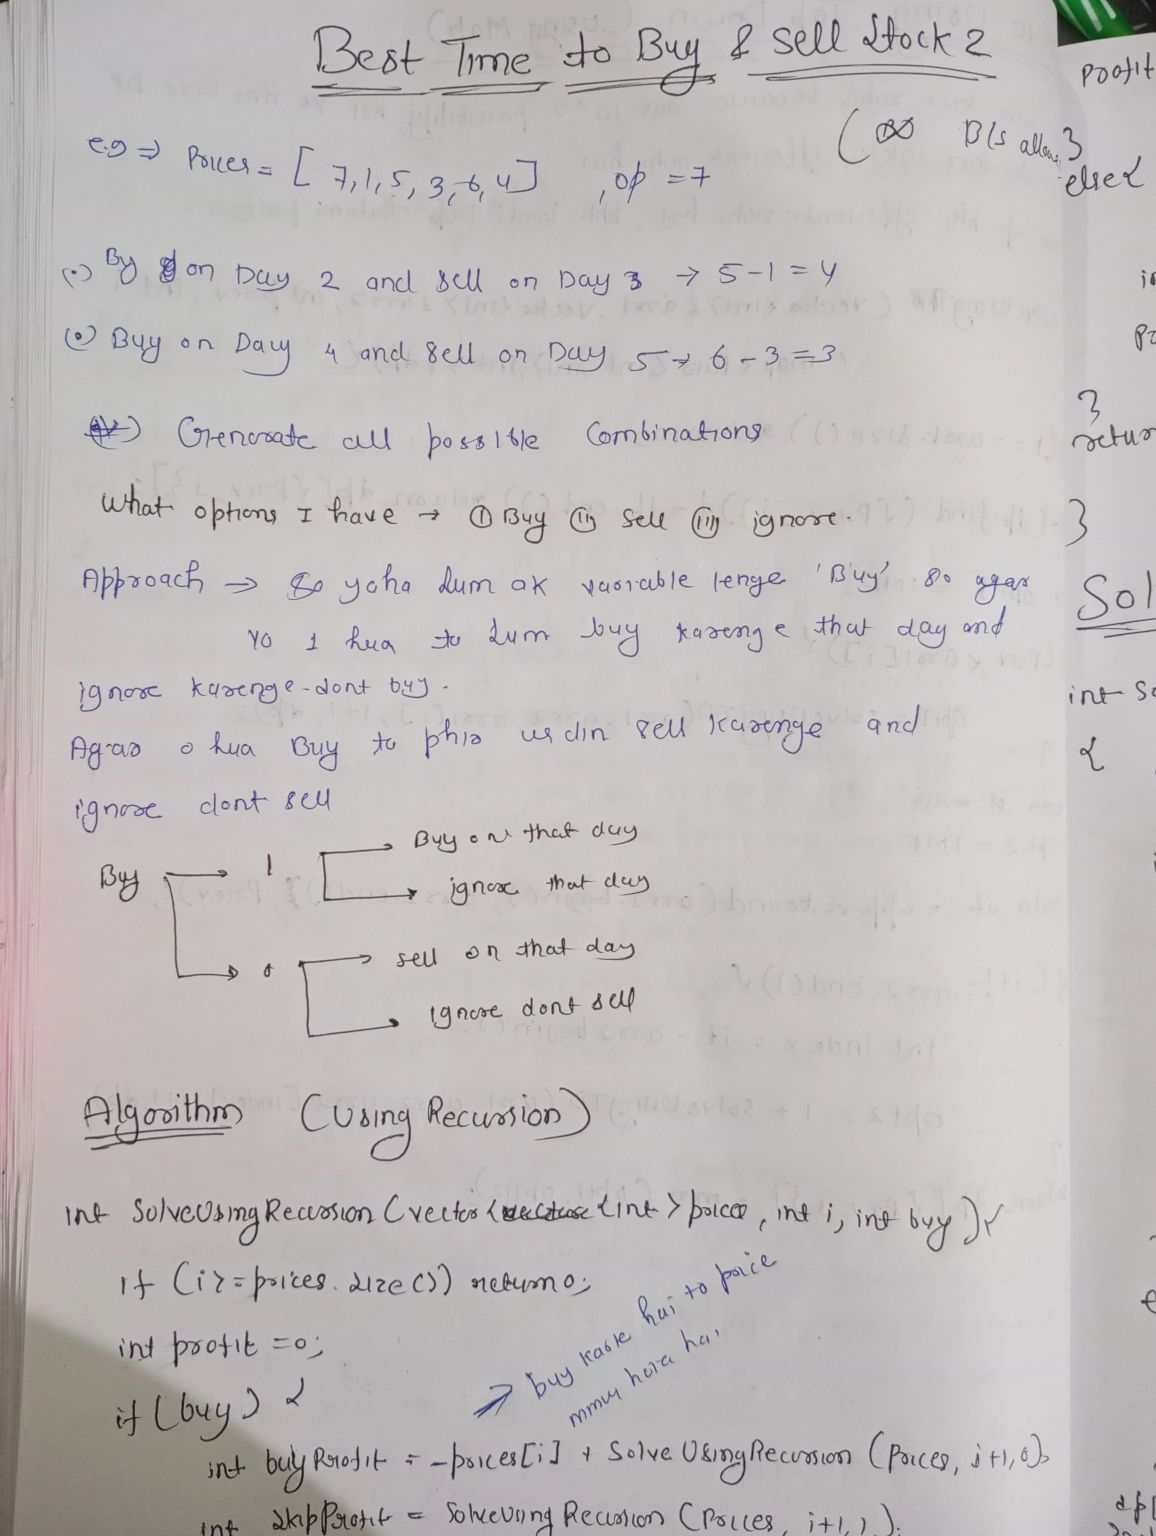 Best Time to Buy & Sell Stock 2
(∞ B/S allow
e.g ⇒ Prices = [ 7,1,5, 3,6,4] , op = 7
(•) By on Day 2 and sell on Day 3 → 5-1 = 4
(•) Buy on Day 4 and sell on Day 5 → 6-3 = 3
Generate all possible Combinations
What options I have → (i) Buy (ii) Sell (iii) ignore.
Approach → So yaha hum ak variable lenge 'Buy' so agar
Yo 1 hua to hum buy karenge that day and
ignore karenge-dont buy.
Agar 0 hua Buy to phir us din sell karenge and
ignore dont sell
Buy → 1 → Buy on that day
→ ignore that day
→ 0 → sell on that day
→ ignore dont sell
Algorithm (Using Recursion)
int SolveUsingRecursion (vector <int> prices, int i, int buy ){
if (i>=prices.size()) return 0;
int profit =0;
if (buy) {
→ buy karke hai to price
minus hora hai
int buyProfit = -prices[i] + SolveUsingRecursion (Prices, i+1,0);
int skipProfit = SolveUsing Recursion (Prices, i+1,1);
profit
}
else{
}
return
}
Sol
int So
{